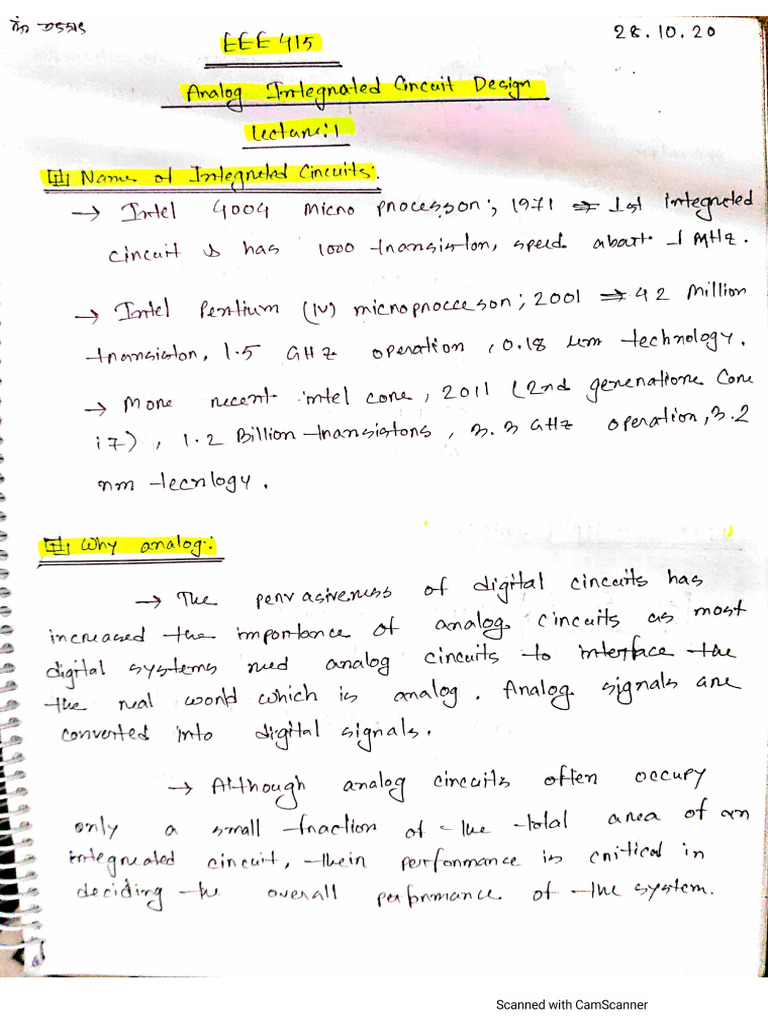 28.10.20
EEE 415
Analog Integrated Circuit Design
Lecture:1
Name of Integrated Circuits:
→ Intel 4004 micro processor; 1971 ⇒ 1st integrated
circuit & has 1000 transistor, speed about 1 MHz.
→ Intel Pentium (IV) microproccesor; 2001 ⇒ 42 Million
transistor, 1.5 GHz operation, 0.18 um technology.
→ More recent intel core, 2011 (2nd generatione Core
i7), 1.2 Billion transistors, 3.3 GHz operation, 3.2
nm tecnlogy.
Why analog:
→ The pervasiveness of digital circuits has
increased the importance of analog circuits as most
digital systems need analog circuits to interface the
the real world which is analog. Analog signals are
converted into digital signals.
→ Although analog circuits often occupy
only a small fraction of the total area of an
integreated circuit, their performance is critical in
deciding the overall performance of the system.
Scanned with CamScanner